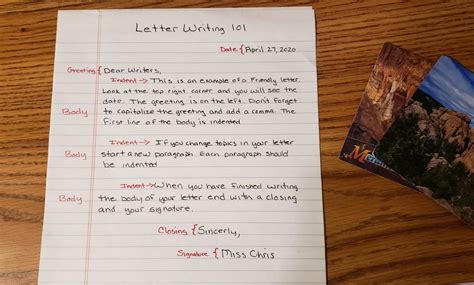 Letter Writing 101
Date { April 27, 2020
Greeting { Dear Writers,
Indent → This is an example of a friendly letter.
Look at the top right corner and you will see the
date. The greeting is on the left. Don't forget
Body { to capitalize the greeting and add a comma. The
first line of the body is indented.
Indent → If you change topics in your letter
Body { start a new paragraph. Each paragraph should
be indented.
Indent → When you have finished writing
Body { the body of your letter end with a closing
and your signature.
Closing { Sincerely,
Signature { Miss Chris